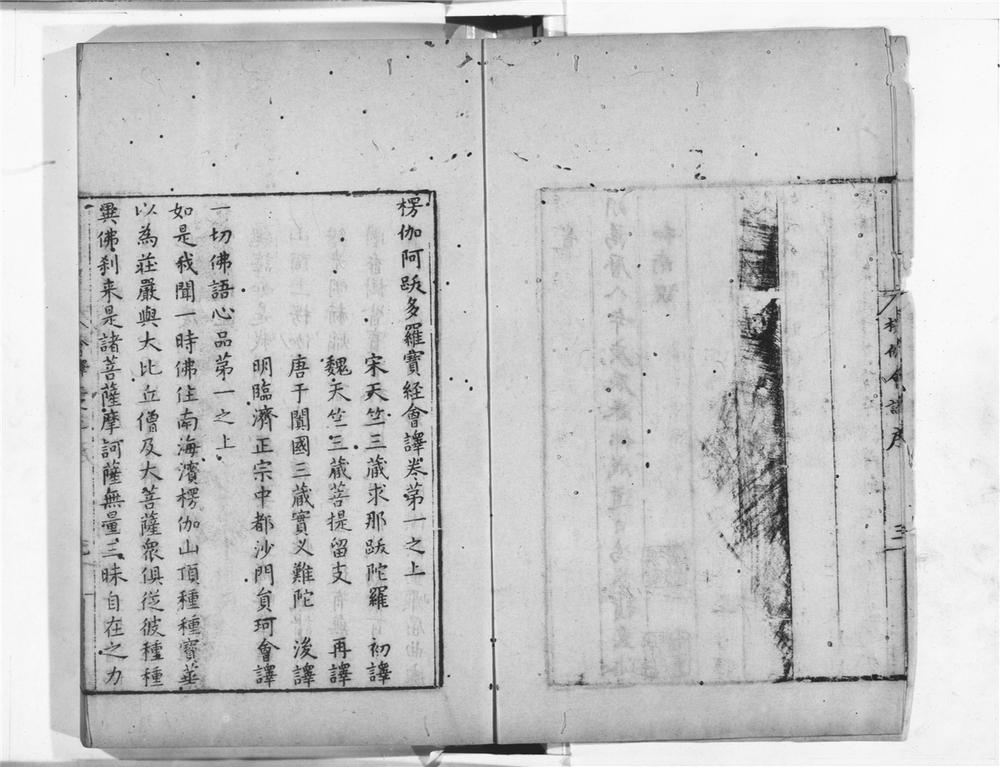 楞伽會譯序
三
楞伽阿跋多羅寶経會譯卷第一之上
宋天竺三蔵求那跋陀羅　初譯
魏天竺三蔵菩提留支　再譯
唐于闐國三蔵實义難陀　後譯
明臨濟正宗中都沙門貟珂會譯
一切佛語心品第一之上
如是我聞一時佛住南海濱楞伽山頂種種寶華
以為莊嚴與大比丘僧及大菩薩衆俱従彼種種
異佛刹来是諸菩薩摩訶薩無量三昧自在之力